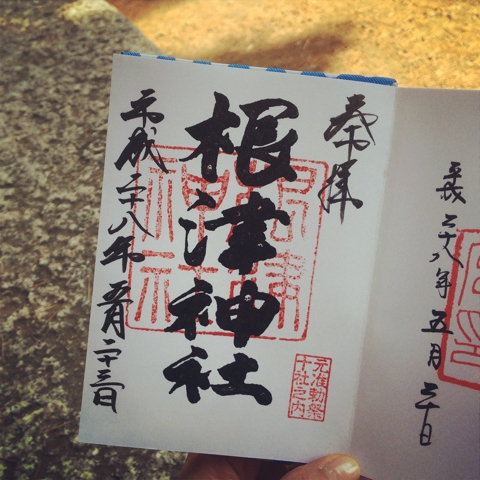 平成二十八年五月二十日
奉拝
根津神社
根津
神社
元准勅祭
十社之内
平成二十八年五月二十三日